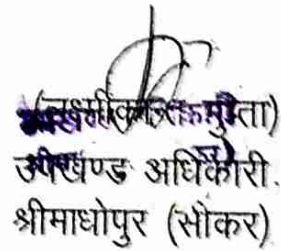 (लक्ष्मीकान्त गुप्ता)
उपखण्ड अधिकारी
श्रीमाधोपुर (सीकर)